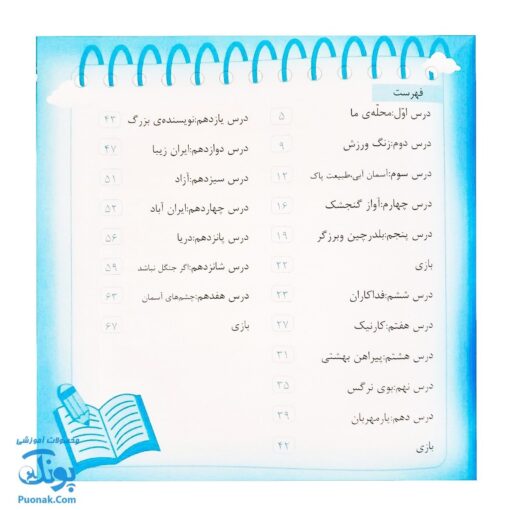 فهرست
درس اوّل:محلّه‌ی ما ۵
درس دوم:زنگ ورزش ۹
درس سوم:آسمان آبی،طبیعت پاک ۱۲
درس چهارم:آواز گنجشک ۱۶
درس پنجم:بلدرچین وبرزگر ۱۹
بازی ۲۲
درس ششم:فداکاران ۲۳
درس هفتم:کارنیک ۲۷
درس هشتم:پیراهن بهشتی ۳۱
درس نهم:بوی نرگس ۳۵
درس دهم:یارمهربان ۳۹
بازی ۴۲
درس یازدهم:نویسنده‌ی بزرگ ۴۳
درس دوازدهم:ایران زیبا ۴۷
درس سیزدهم:آزاد ۵۱
درس چهاردهم:ایران آباد ۵۲
درس پانزدهم:دریا ۵۶
درس شانزدهم:اگر جنگل نباشد ۵۹
درس هفدهم:چشم‌های آسمان ۶۳
بازی ۶۷
محصولات آموزشی
پونک
Puonak.Com